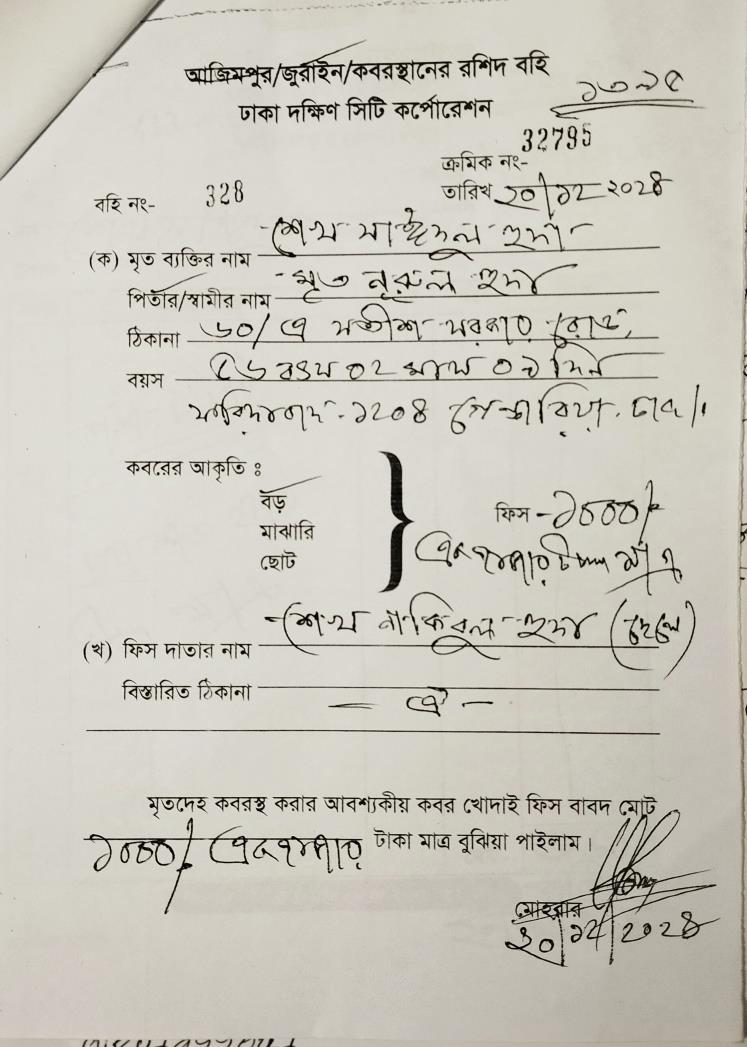 আজিমপুর/জুরাইন/কবরস্থানের রশিদ বহি
ঢাকা দক্ষিণ সিটি কর্পোরেশন
32795
ক্রমিক নং-
বহি নং- 328
তারিখ ২০/১২ ২০২৪
(ক) মৃত ব্যক্তির নাম শেখ মাইনুল হুদা
পিতার/স্বামীর নাম মৃত নূরুল হুদা
ঠিকানা ৬০/এ সতীশ সরকার রোড,
বয়স ৫৬ বৎসর ০২ মাস ০৯ দিন
ফরিদাবাদ-১২০৪ গেন্ডারিয়া, ঢাকা।
কবরের আকৃতি ঃ
বড়
মাঝারি
ছোট
ফিস - ১০০০/-
এক হাজার টাকা মাত্র
(খ) ফিস দাতার নাম শেখ নাকিবুল হুদা (ছেলে)
বিস্তারিত ঠিকানা - ঐ -
মৃতদেহ কবরস্থ করার আবশ্যকীয় কবর খোদাই ফিস বাবদ মোট
১০০০/- এক হাজার টাকা মাত্র বুঝিয়া পাইলাম।
মোহরার
২০/১২/২০২৪